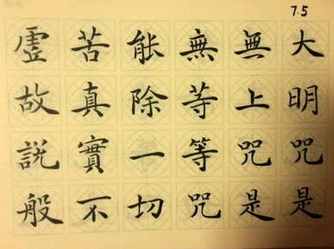 7.5
大明咒是
無上咒是
無等等咒
能除一切
苦真實不
虛故說般